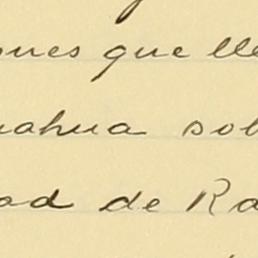 ones que lle
uahua sob
ad de Ra